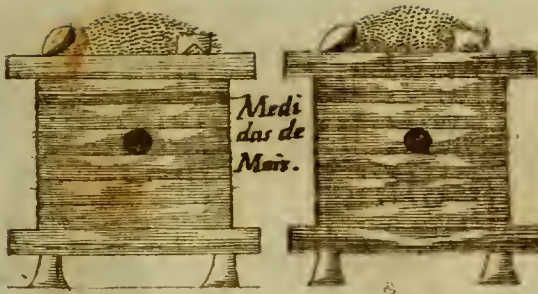 Medi
das de
Mais.